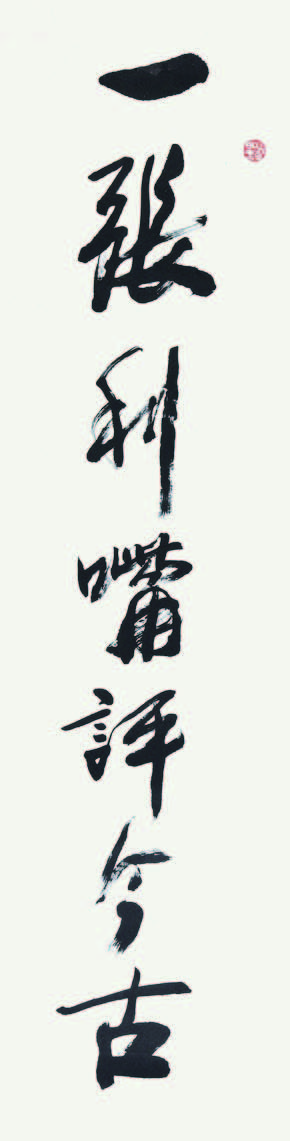 一張利嘴評今古